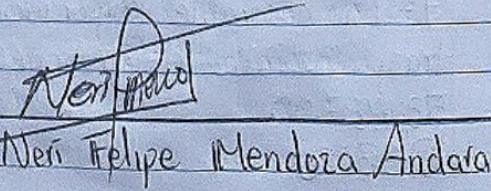 Neri
Neri Felipe Mendoza Andara